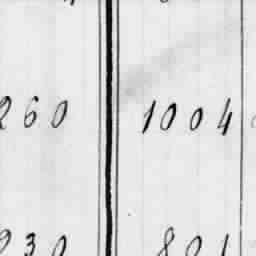 260 1004
230 801